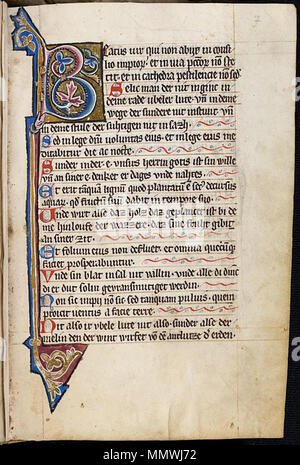 Beatus uir qui non abijt in consi
lio impior. et in uia peccor. nō ste
tit. et in cathedra pestilencie nō sed
Selic man der nit inginc in
deme rade ubeler lute. vn̄ in deme
wege der sundere nit instuit. vn̄
in deme stule der suhtigen nit in sazh.
Sed in lege dn̄i uoluntas eius. et in lege eius me
ditabitur die ac nocte.
Sunder inder e unsirs herrin gotis ist sin wille
vn̄ an siner e denket er dages vnde nahtes.
Et erit tāquā lignū quod plantatū ē sec. decursus
aquar. qd fructū suū dabit in tempore suo.
Unde wirt alse daz holz daz geplanzet ist bi de
me hinloufe der wazzere. daz sine fruht gibit
an siner zit.
Et folium eius non defluet. et omnia quecūq
faciet prosperabuntur.
Unde sin blat insal nit vallin. vnde alle di dinc
di er dut solin geuramsmutiget werdin.
Non sic impij nō sic. sed tanquam puluis. quem
proicit uentus a facie terre.
Nit also ir vbele lute nit also. sunder alse der
melm den der wint wirfet vō dem antlutze d erden.
alamy
Image ID: MMWJ72
www.alamy.com